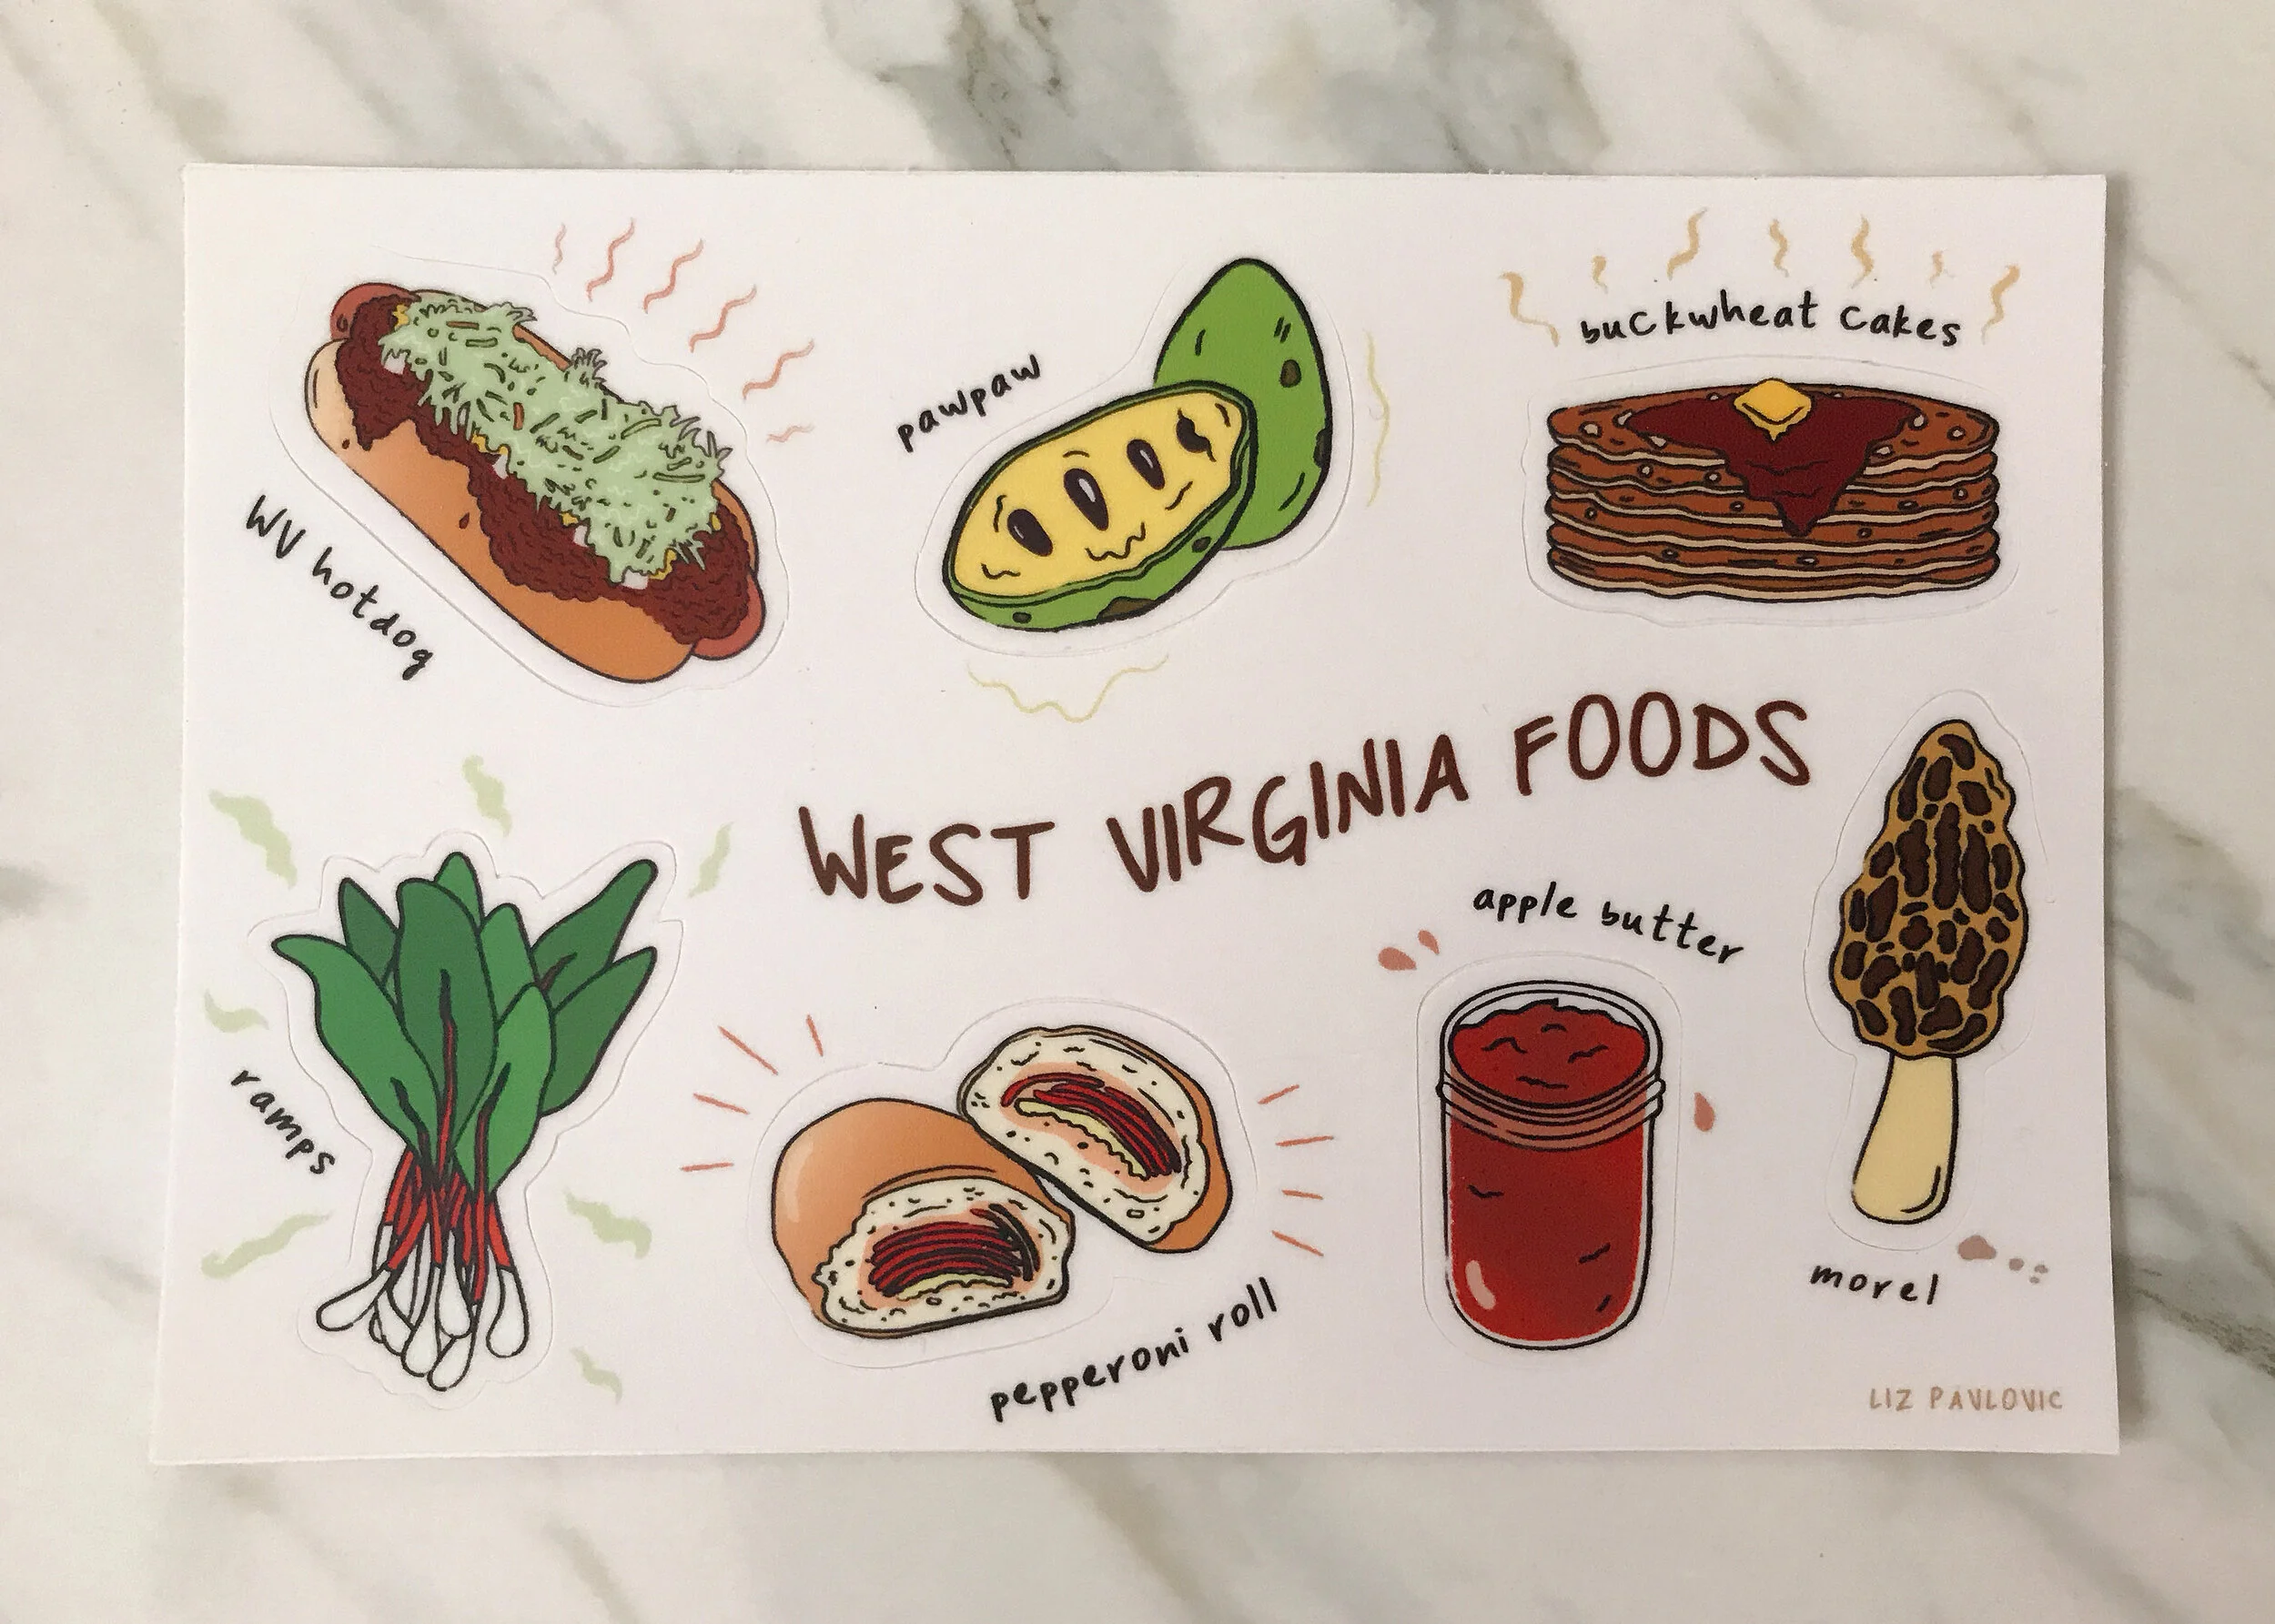 WV hotdog
pawpaw
buckwheat cakes
WEST VIRGINIA FOODS
ramps
pepperoni roll
apple butter
morel
LIZ PAVLOVIC